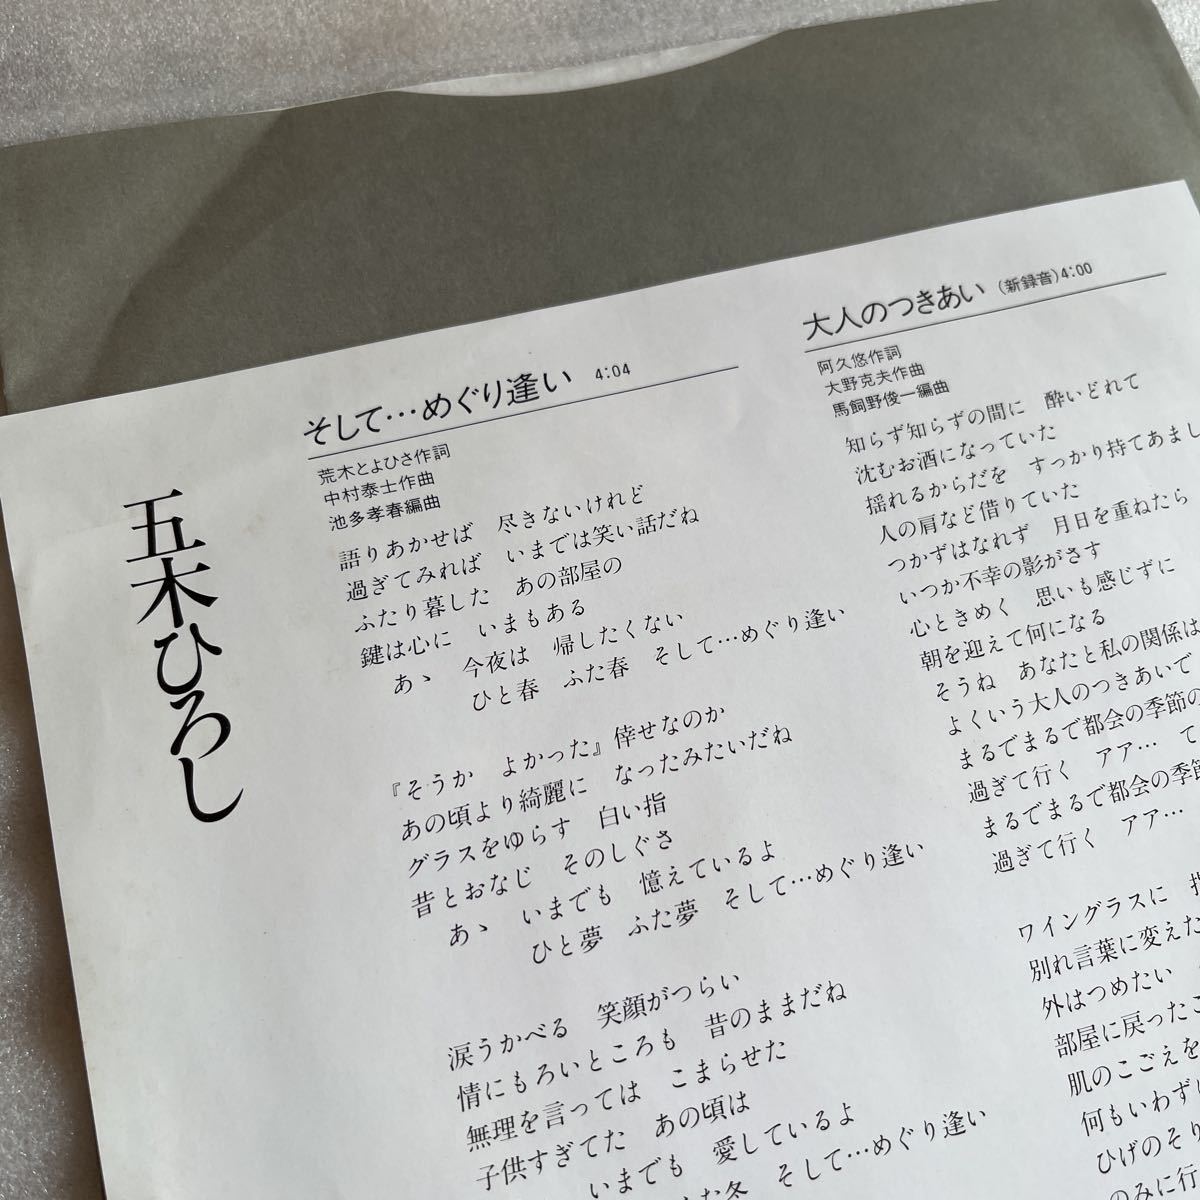 五木ひろし
そして…めぐり逢い 4:04
荒木とよひさ作詞
中村泰士作曲
池多孝春編曲
語りあかせば 尽きないけれど
過ぎてみれば いまでは笑い話だね
ふたり暮した あの部屋の
鍵は心に いまもある
あゝ 今夜は 帰したくない
ひと春 ふた春 そして…めぐり逢い
『そうか よかった』倖せなのか
あの頃より綺麗に なったみたいだね
グラスをゆらす 白い指
昔とおなじ そのしぐさ
あゝ いまでも 憶えているよ
ひと夢 ふた夢 そして…めぐり逢い
涙うかべる 笑顔がつらい
情にもろいところも 昔のままだね
無理を言っては こまらせた
子供すぎてた あの頃は
いまでも 愛しているよ
冬 そして…めぐり逢い
大人のつきあい (新録音)4:00
阿久悠作詞
大野克夫作曲
馬飼野俊一編曲
知らず知らずの間に 酔いどれて
沈むお酒になっていた
揺れるからだを すっかり持てあまし
人の肩など借りていた
つかずはなれず 月日を重ねたら
いつか不幸の影がさす
心ときめく 思いも感じずに
朝を迎えて何になる
そうね あなたと私の関係は
よくいう大人のつきあいで
まるでまるで都会の季節の
過ぎて行く アア… て
まるでまるで都会の季
過ぎて行く アア…
ワイングラスに
別れ言葉に変えた
外はつめたい
部屋に戻ったこ
肌のこごえを
何もいわず
ひげのそり
のみに行